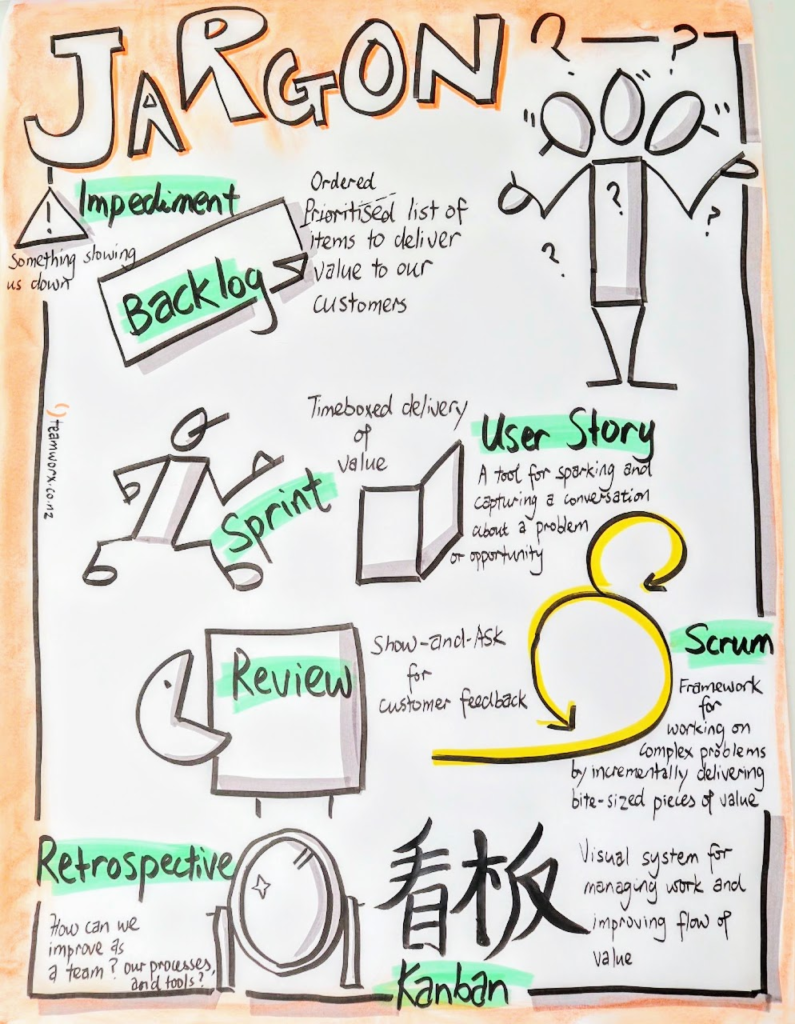 JARGON
? ?
Impediment
!
Something slowing
us down
Ordered
Prioritised list of
items to deliver
value to our
customers
Backlog
?
?
?
teamworx.co.nz
Timeboxed delivery
of
value
Sprint
User Story
A tool for sparking and
capturing a conversation
about a problem
or opportunity
Review
Show-and-Ask
for
customer feedback
Scrum
Framework
for
working on
complex problems
by incrementally delivering
bite-sized pieces of value
Retrospective
How can we
improve as
a team? our processes,
and tools?
看板
Kanban
Visual system for
managing work and
improving flow of
value